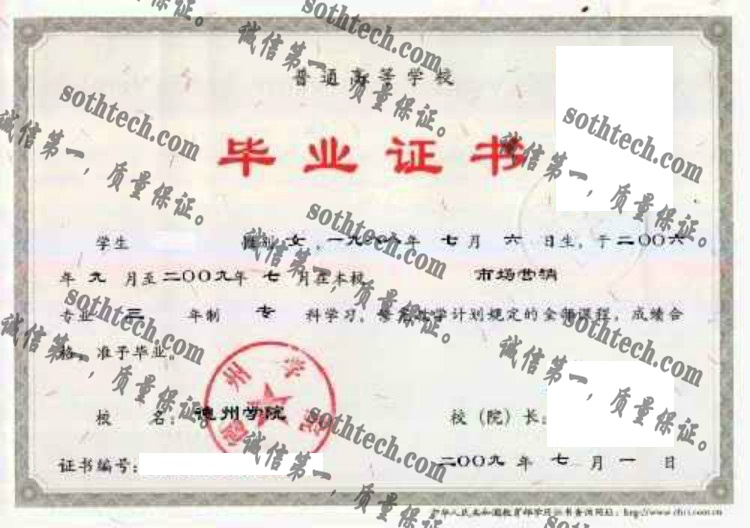 普通高等学校
毕业证书
学生 性别 女，一九八八年 七月 六日生，于二〇〇六
年 九 月至二〇〇九年 七月在本校 市场营销
专业 三 年制 专 科学习，修完教学计划规定的全部课程，成绩合
格，准予毕业。
德州学院
校 名：德州学院 校（院）长：
证书编号： 二〇〇九 年 七 月 一 日
中华人民共和国教育部学历证书查询网址：http://www.chsi.com.cn
sothtech.com
诚信第一，质量保证。
sothtech.com
诚信第一，质量保证。
sothtech.com
诚信第一，质量保证。
sothtech.com
诚信第一，质量保证。
sothtech.com
诚信第一，质量保证。
sothtech.com
诚信第一，质量保证。
sothtech.com
诚信第一，质量保证。